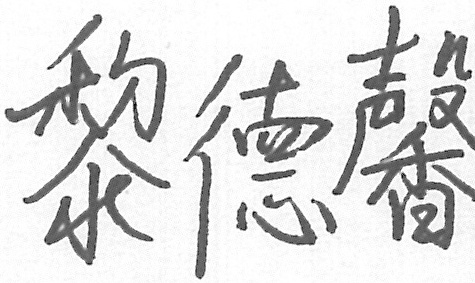 黎德馨